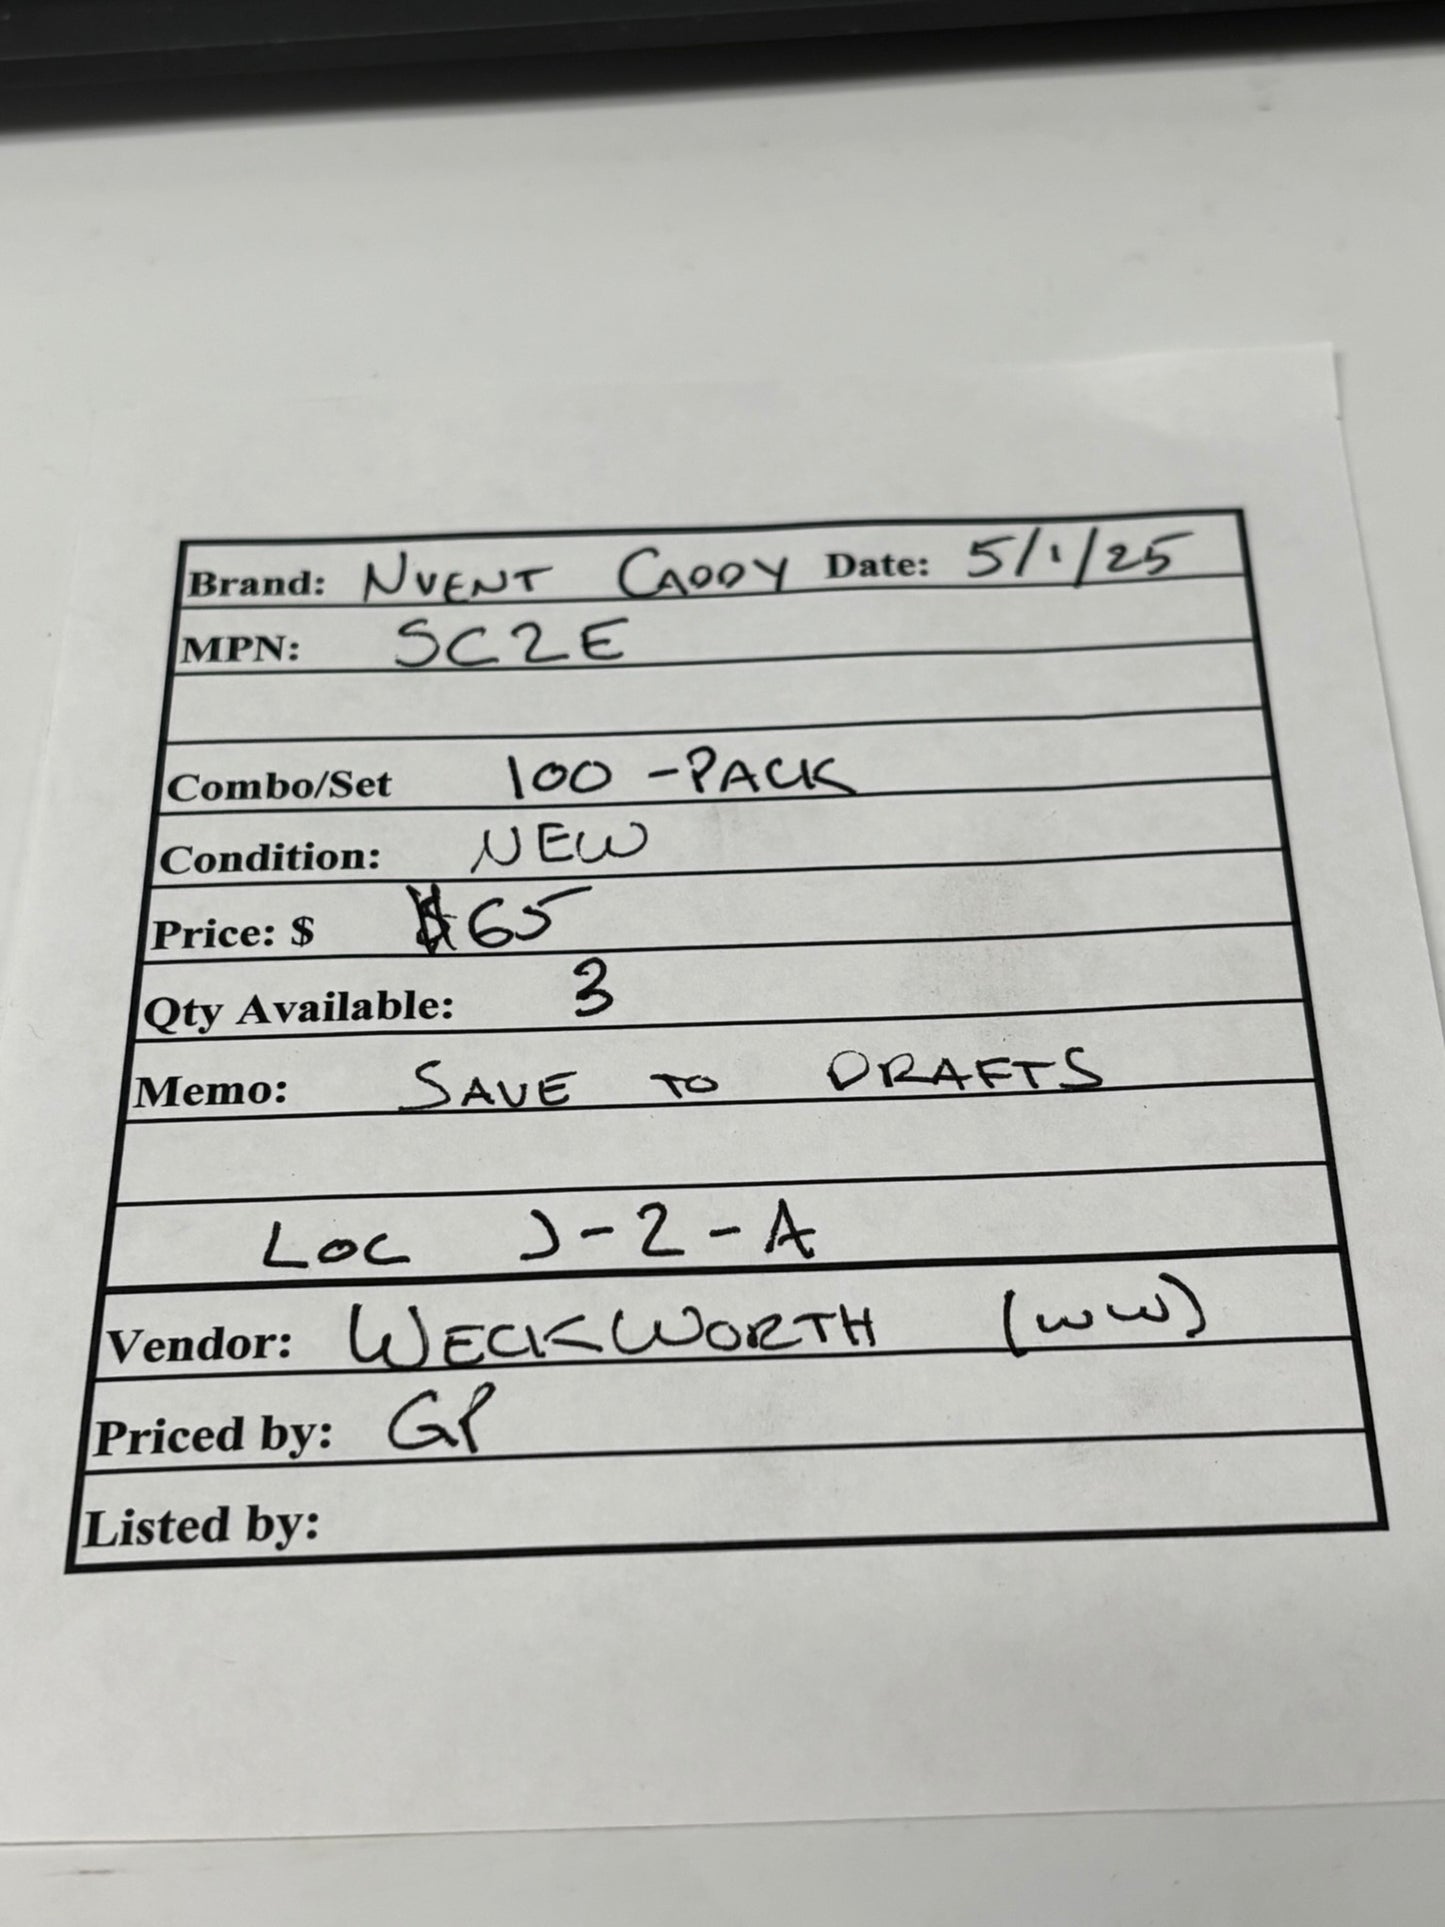 Brand: NVENT CADDY Date: 5/1/25
MPN: SC2E
Combo/Set 100-PACK
Condition: NEW
Price: $ $65
Qty Available: 3
Memo: SAVE TO DRAFTS
LOC J-2-A
Vendor: WECKWORTH (WW)
Priced by: GP
Listed by: